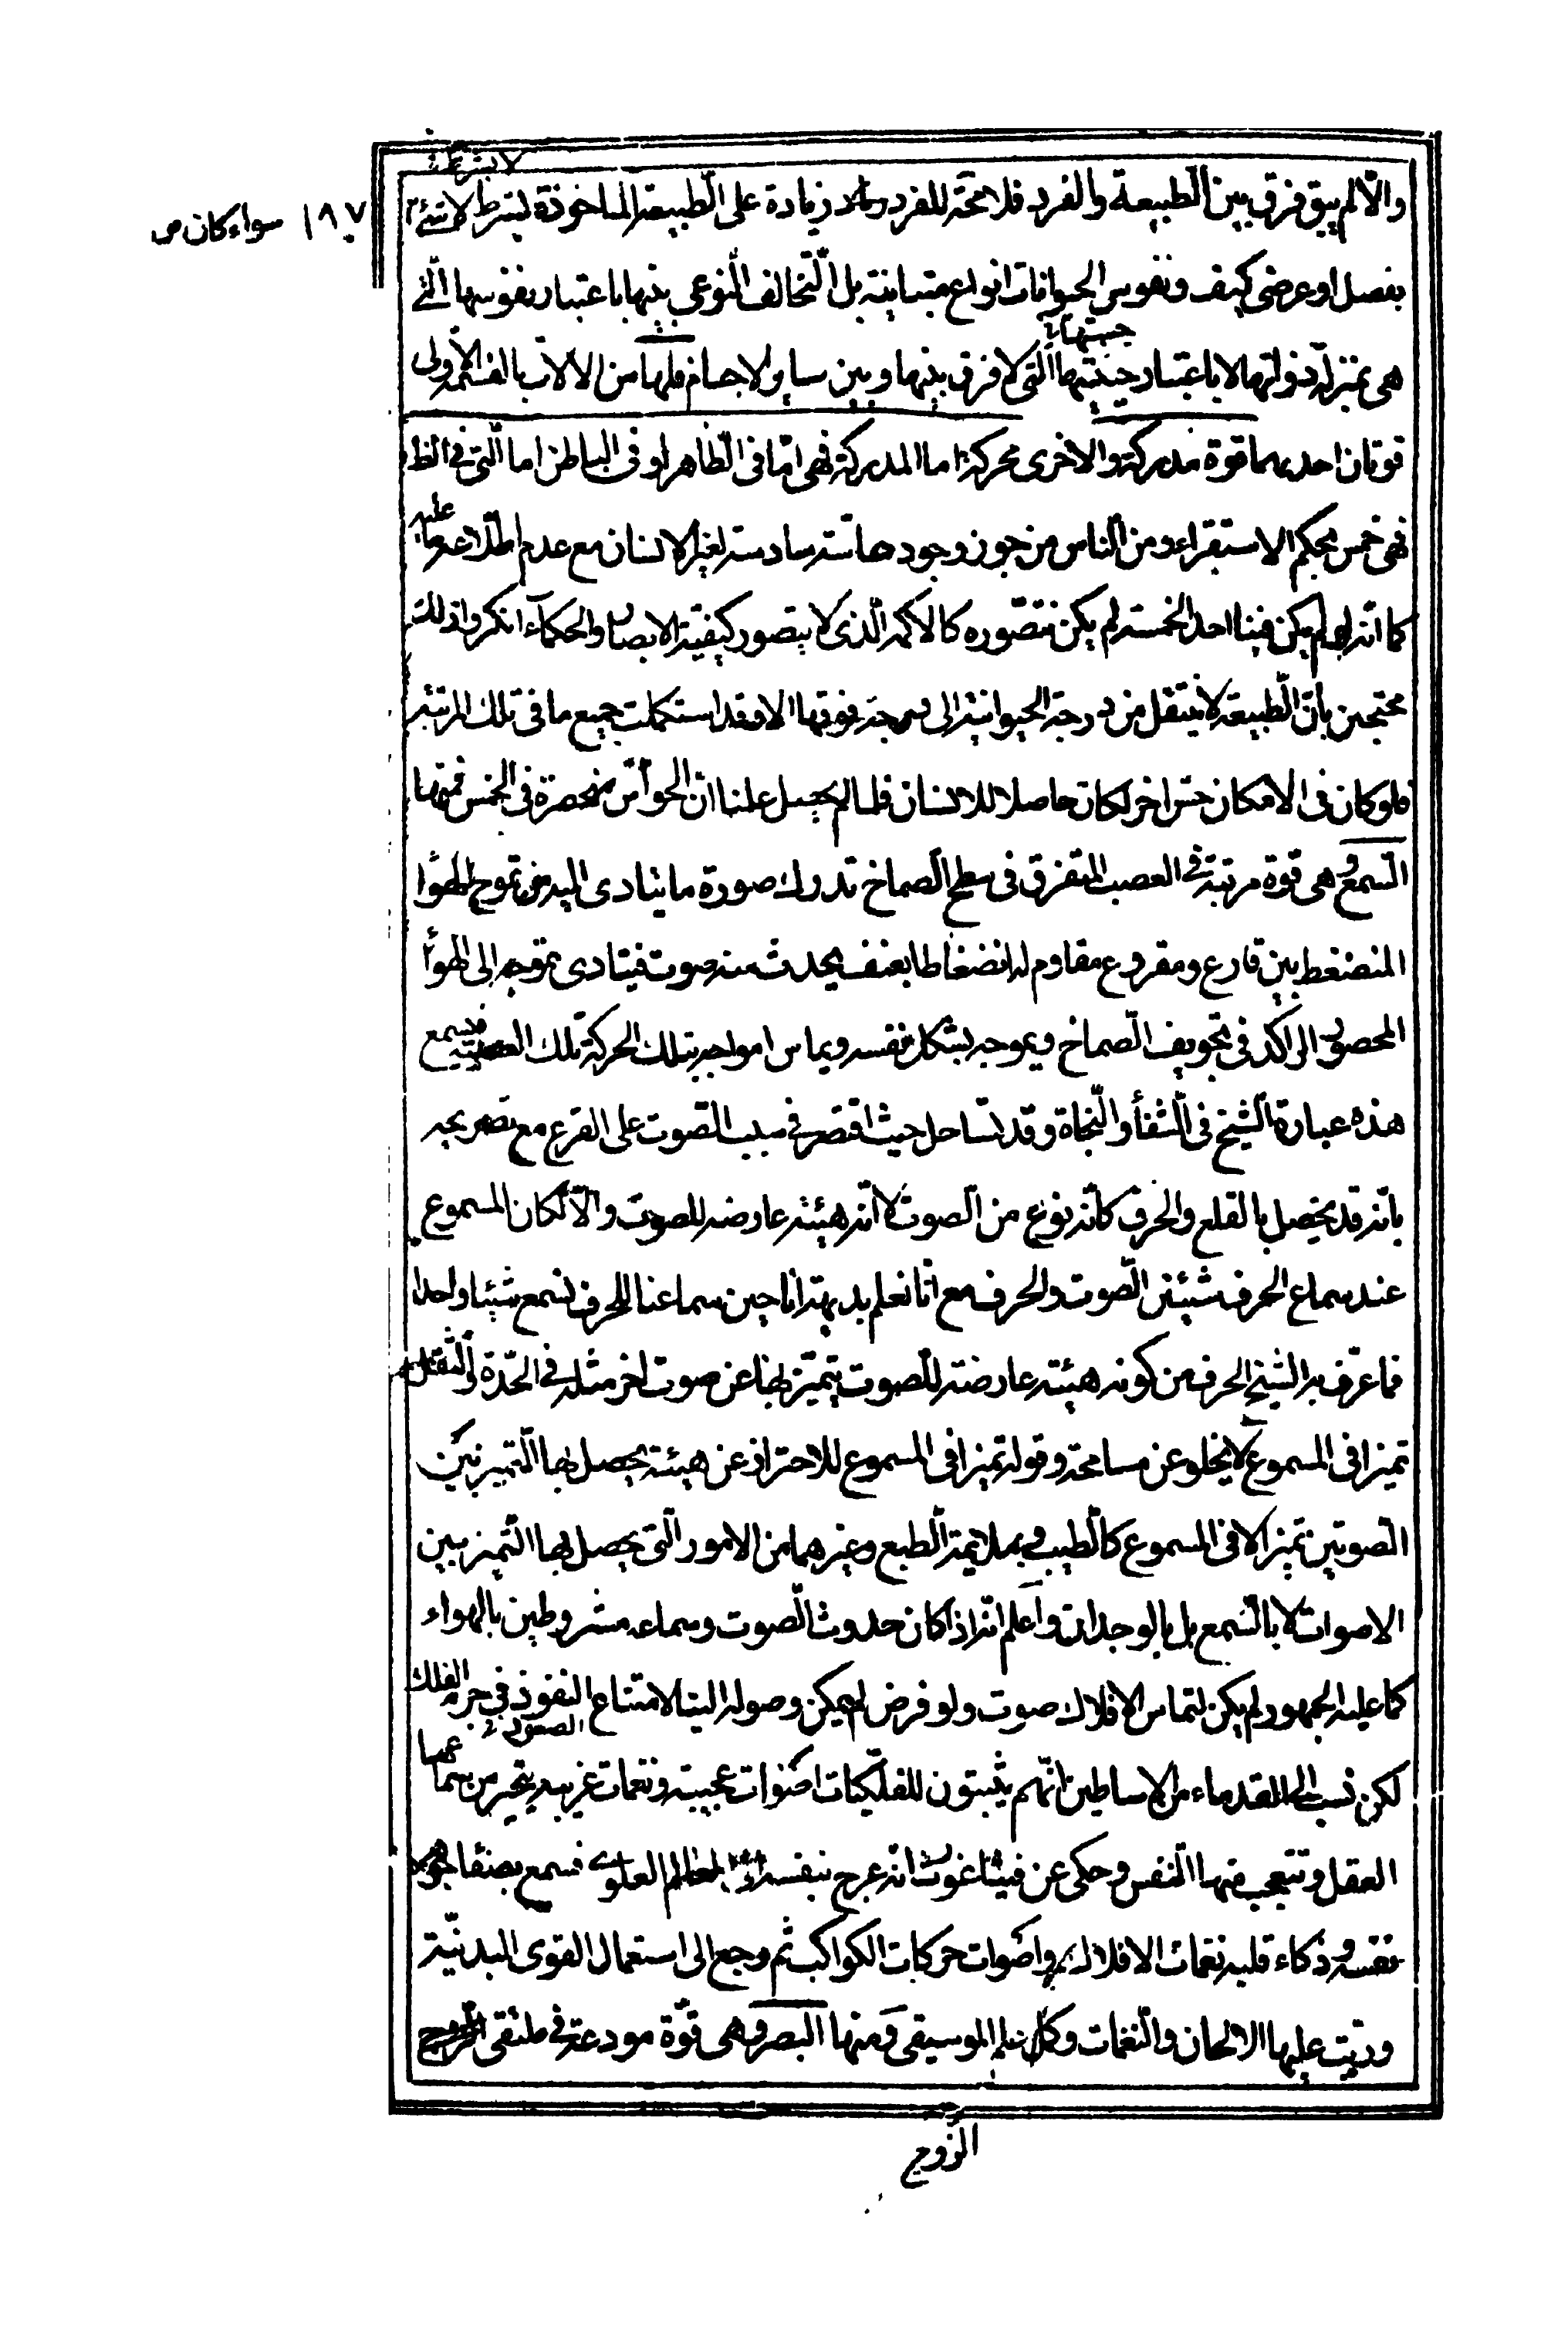 لا بشرط
١٨٧ سواء كان ص
والّا لم يبق فرق بين الطّبيعة والفرد فلا محّة للفرد زيادة على الطّبيعة الماخوذة بشرط لا شئ
بفصل او عرضى كيف ونفوس الحيوانات انواع متباينة بل التّخالف النّوعى بينها باعتبار نفوسها الّتى
جسميتها
هى بمنزلة ذواتها لا باعتبار جثيتها الّتى لا فرق بينها وبين ساير الاجسام فلها من الالات بالقسمة الاولى
قوتان احديهما قوة مدركة والاخرى محركة اما المدركة فهى امّا فى الظّاهر او فى الباطن اما الّتى فى الظ
فهى خمس بحكم الاستقراء ومن النّاس من جوز وجود حاسّة سادسة لغير الانسان مع عدم اطلاعه عليه
كما انّه لو لم يكن فينا احد الخمسة لم يكن نتصّوره كالاكمه الّذى لا يتصور كيفية الابصار والحكماء انكروا ذلك
محتجين بانّ الطّبيعة لا ينتقل من درجة الحيوانية الى درجة فوقها الا وقد استكملت جميع ما فى تلك المرتبة
فلو كان فى الامكان حسّ اخر لكان حاصلا للانسان فلما لم يحصل علمنا انّ الحواسّ منحصرة فى الخمس فمنها
السّمع وهى قوّة مرتبة فى العصب المتفرق فى سطح الصّماخ تدرك صورة ما يتادى اليه من تموج الهوا
المنضغط بين قارع ومقروع مقاوم له انضغاطا بعنف يحدث منه صوت فيتادى تموجه الى الهوا
المحصور الراكد فى تجويف الصّماخ ويموجه بشكل نفسه ويماس امواجه بتلك الحركة تلك العصبة فيسمع
هذه عبارة الشّيخ فى الشّفاء والنّجاة وقد تساهل حيث اقتصر فى سبب الصّوت على القرع مع تصريحه
بانّه قد يحصل بالقلع والحرف كانّه نوع من الصّوت لا انّه هيئة عارضه للصوت والّا لكان المسموع
عند سماع الحرف شيئين الصّوت والحرف مع انّا نعلم بديهة انا حين سماعنا للحرف نسمع شيئا واحدا
فما عرّف به الشيخ الحرف من كونه هيئة عارضة للصوت يتميّز بها عن صوت اخر مثله فى الحدّة والثقل
تميزا فى المسموع لا يخلو عن مسامحة وقوله تميزا فى المسموع للاحتراز عن هيئة يحصل بها التّمييز بين
الصّوتين تميزا لا فى المسموع كالطّيب وبملايمة الطّبع وغيرهما من الامور الّتى يحصل بها التّميز بين
الاصوات لا بالسّمع بل بالوجدان واعلم انّه اذا كان حدوث الصّوت وسماعه مشروطين بالهواء
كما عليه الجمهور لم يكن لتماس الافلاك صوت ولو فرض لم يمكن وصوله الينا لامتناع النفوذ فى جرم الفلك
لكن نسب الى القدماء من الاساطين انّهم يثبتون للفلكيات اصوات عجيبة ونغمات غريبة يتحير من سماعها
العقل وتتعجب منها النّفس وحكى عن فيثاغورث انه عرج بنفسه الى العالم العلوى فسمع بصفاء جوهر
نفسه وذكاء قلبه نغمات الافلاك واصوات حركات الكواكب ثم رجع الى استعمال القوى البدنيّة
ورتّب عليها الالحان والنّغمات وكمل علم الموسيقى ومنها البصر وهى قوّة مودعة فى ملتقى الزّوج
الزّوج